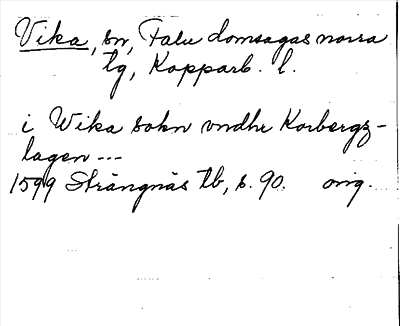 Vika, sn, Falu domsagas norra
tg, Kopparb. l.
i Wika sokn vndhr Korbergz-
lagen ---
1599 Strängnäs tb, s. 90. orig.